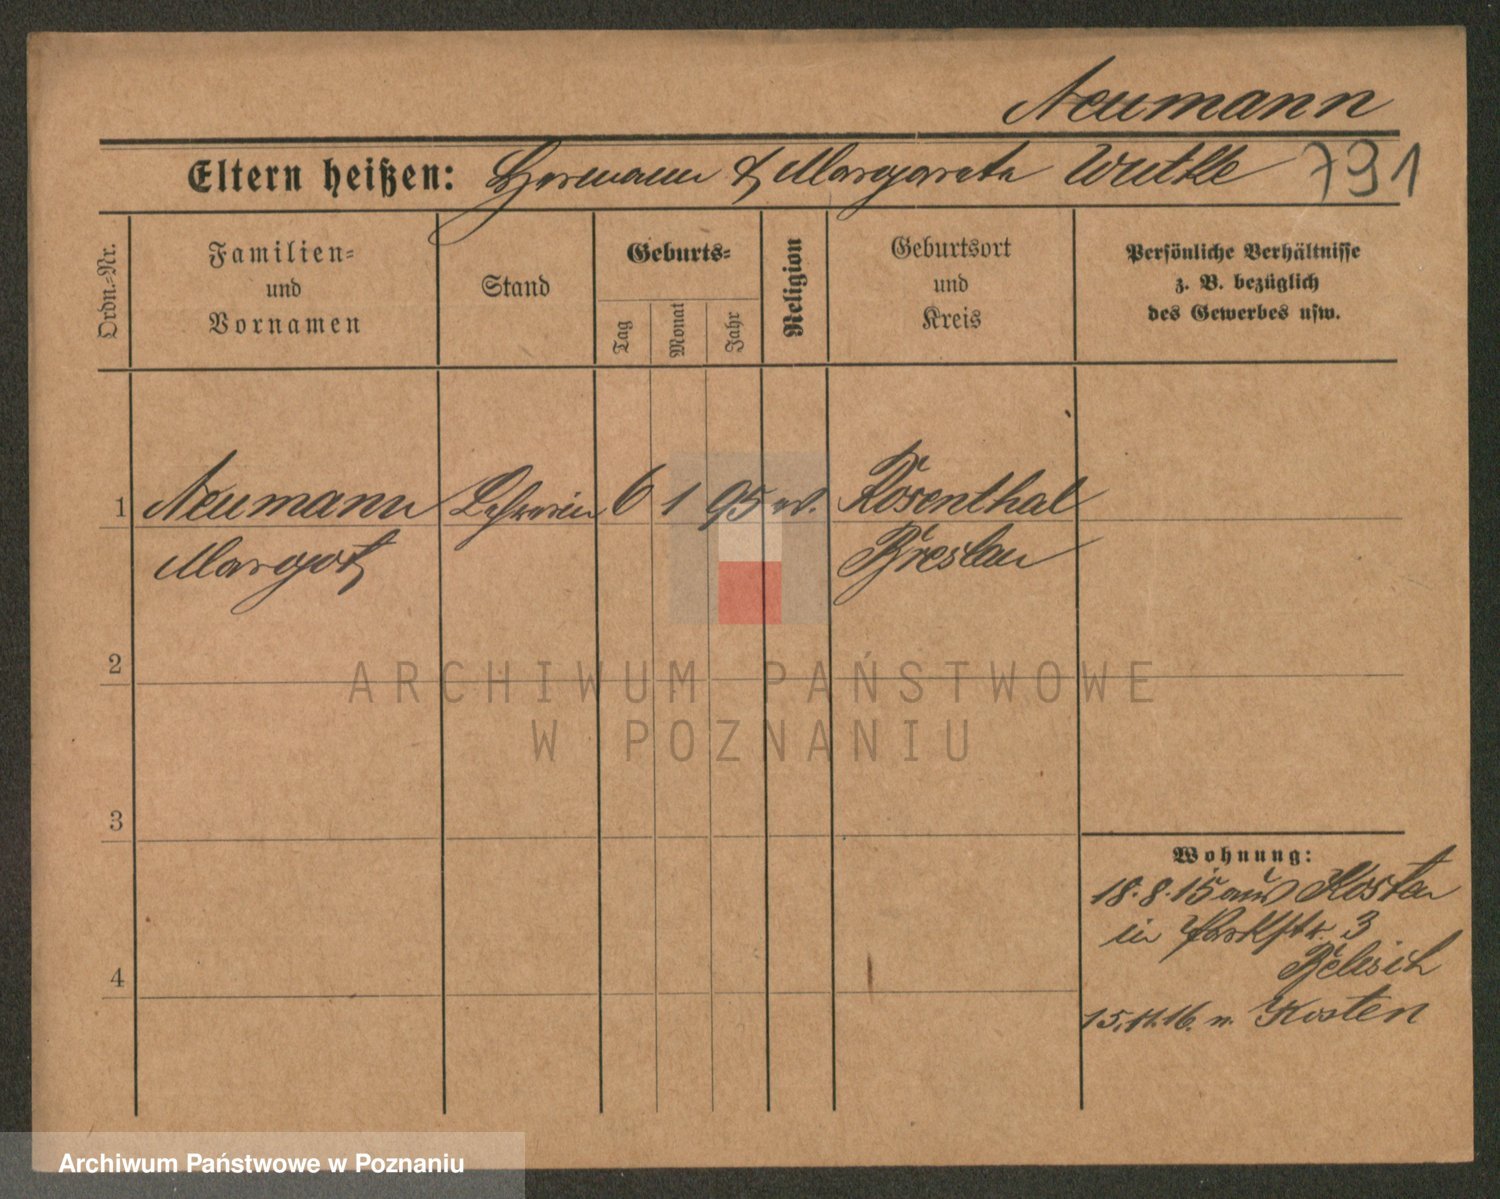 Neumann
Eltern heißen: Hermann & Margarete Wuttke 791
Ordn.-Nr.
Familien-
und
Vornamen
Stand
Geburts-
Tag
Monat
Jahr
Religion
Geburtsort
und
Kreis
Persönliche Verhältnisse
z. B. bezüglich
des Gewerbes usw.
1 Neumann Lehrerin 6 1 95 ev. Rosenthal
Margot Breslau
2
3
4
Wohnung:
18.8.15 aus Kosten
in Parkstr. 3
15.11.16. n. Kosten
ARCHIWUM PAŃSTWOWE
W POZNANIU
Archiwum Państwowe w Poznaniu